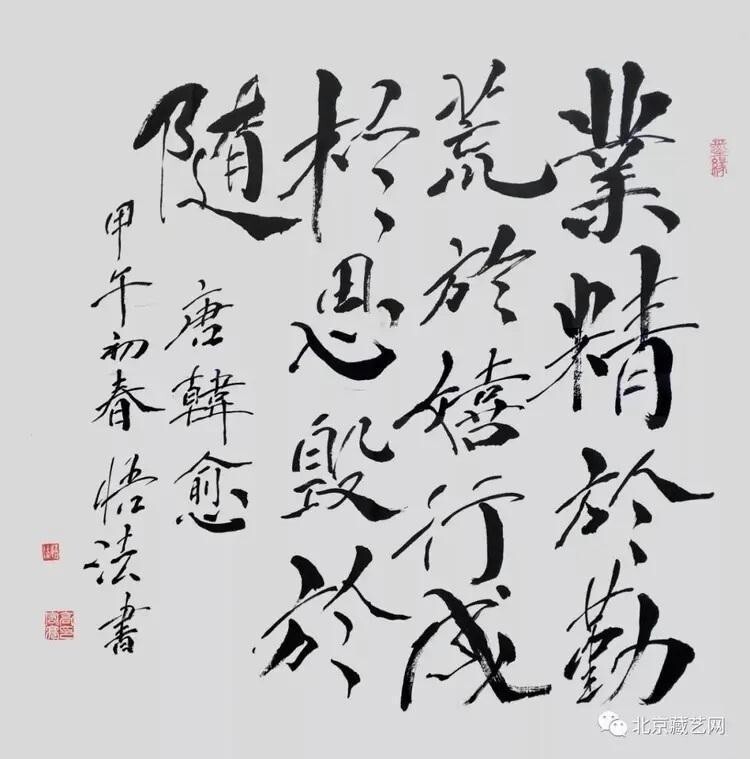 業精於勤
荒於嬉行成
於思毀於
隨
唐韓愈
甲午初春悟法書
墨緣
北京藏艺网